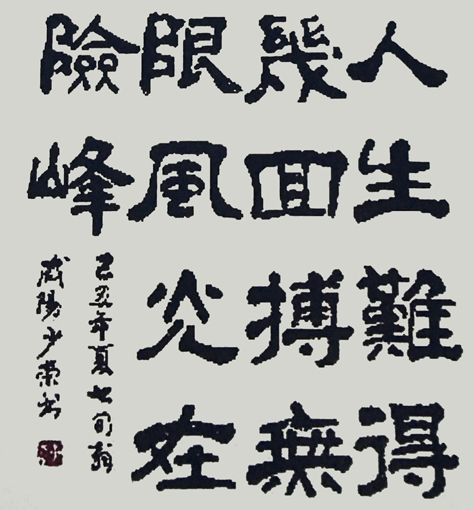 人生難得
幾回搏無
限風光在
險峰
己亥年夏七旬翁
咸陽少榮书